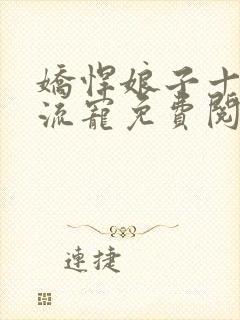 嬌悍娘子十
流寵免費閱
連捷